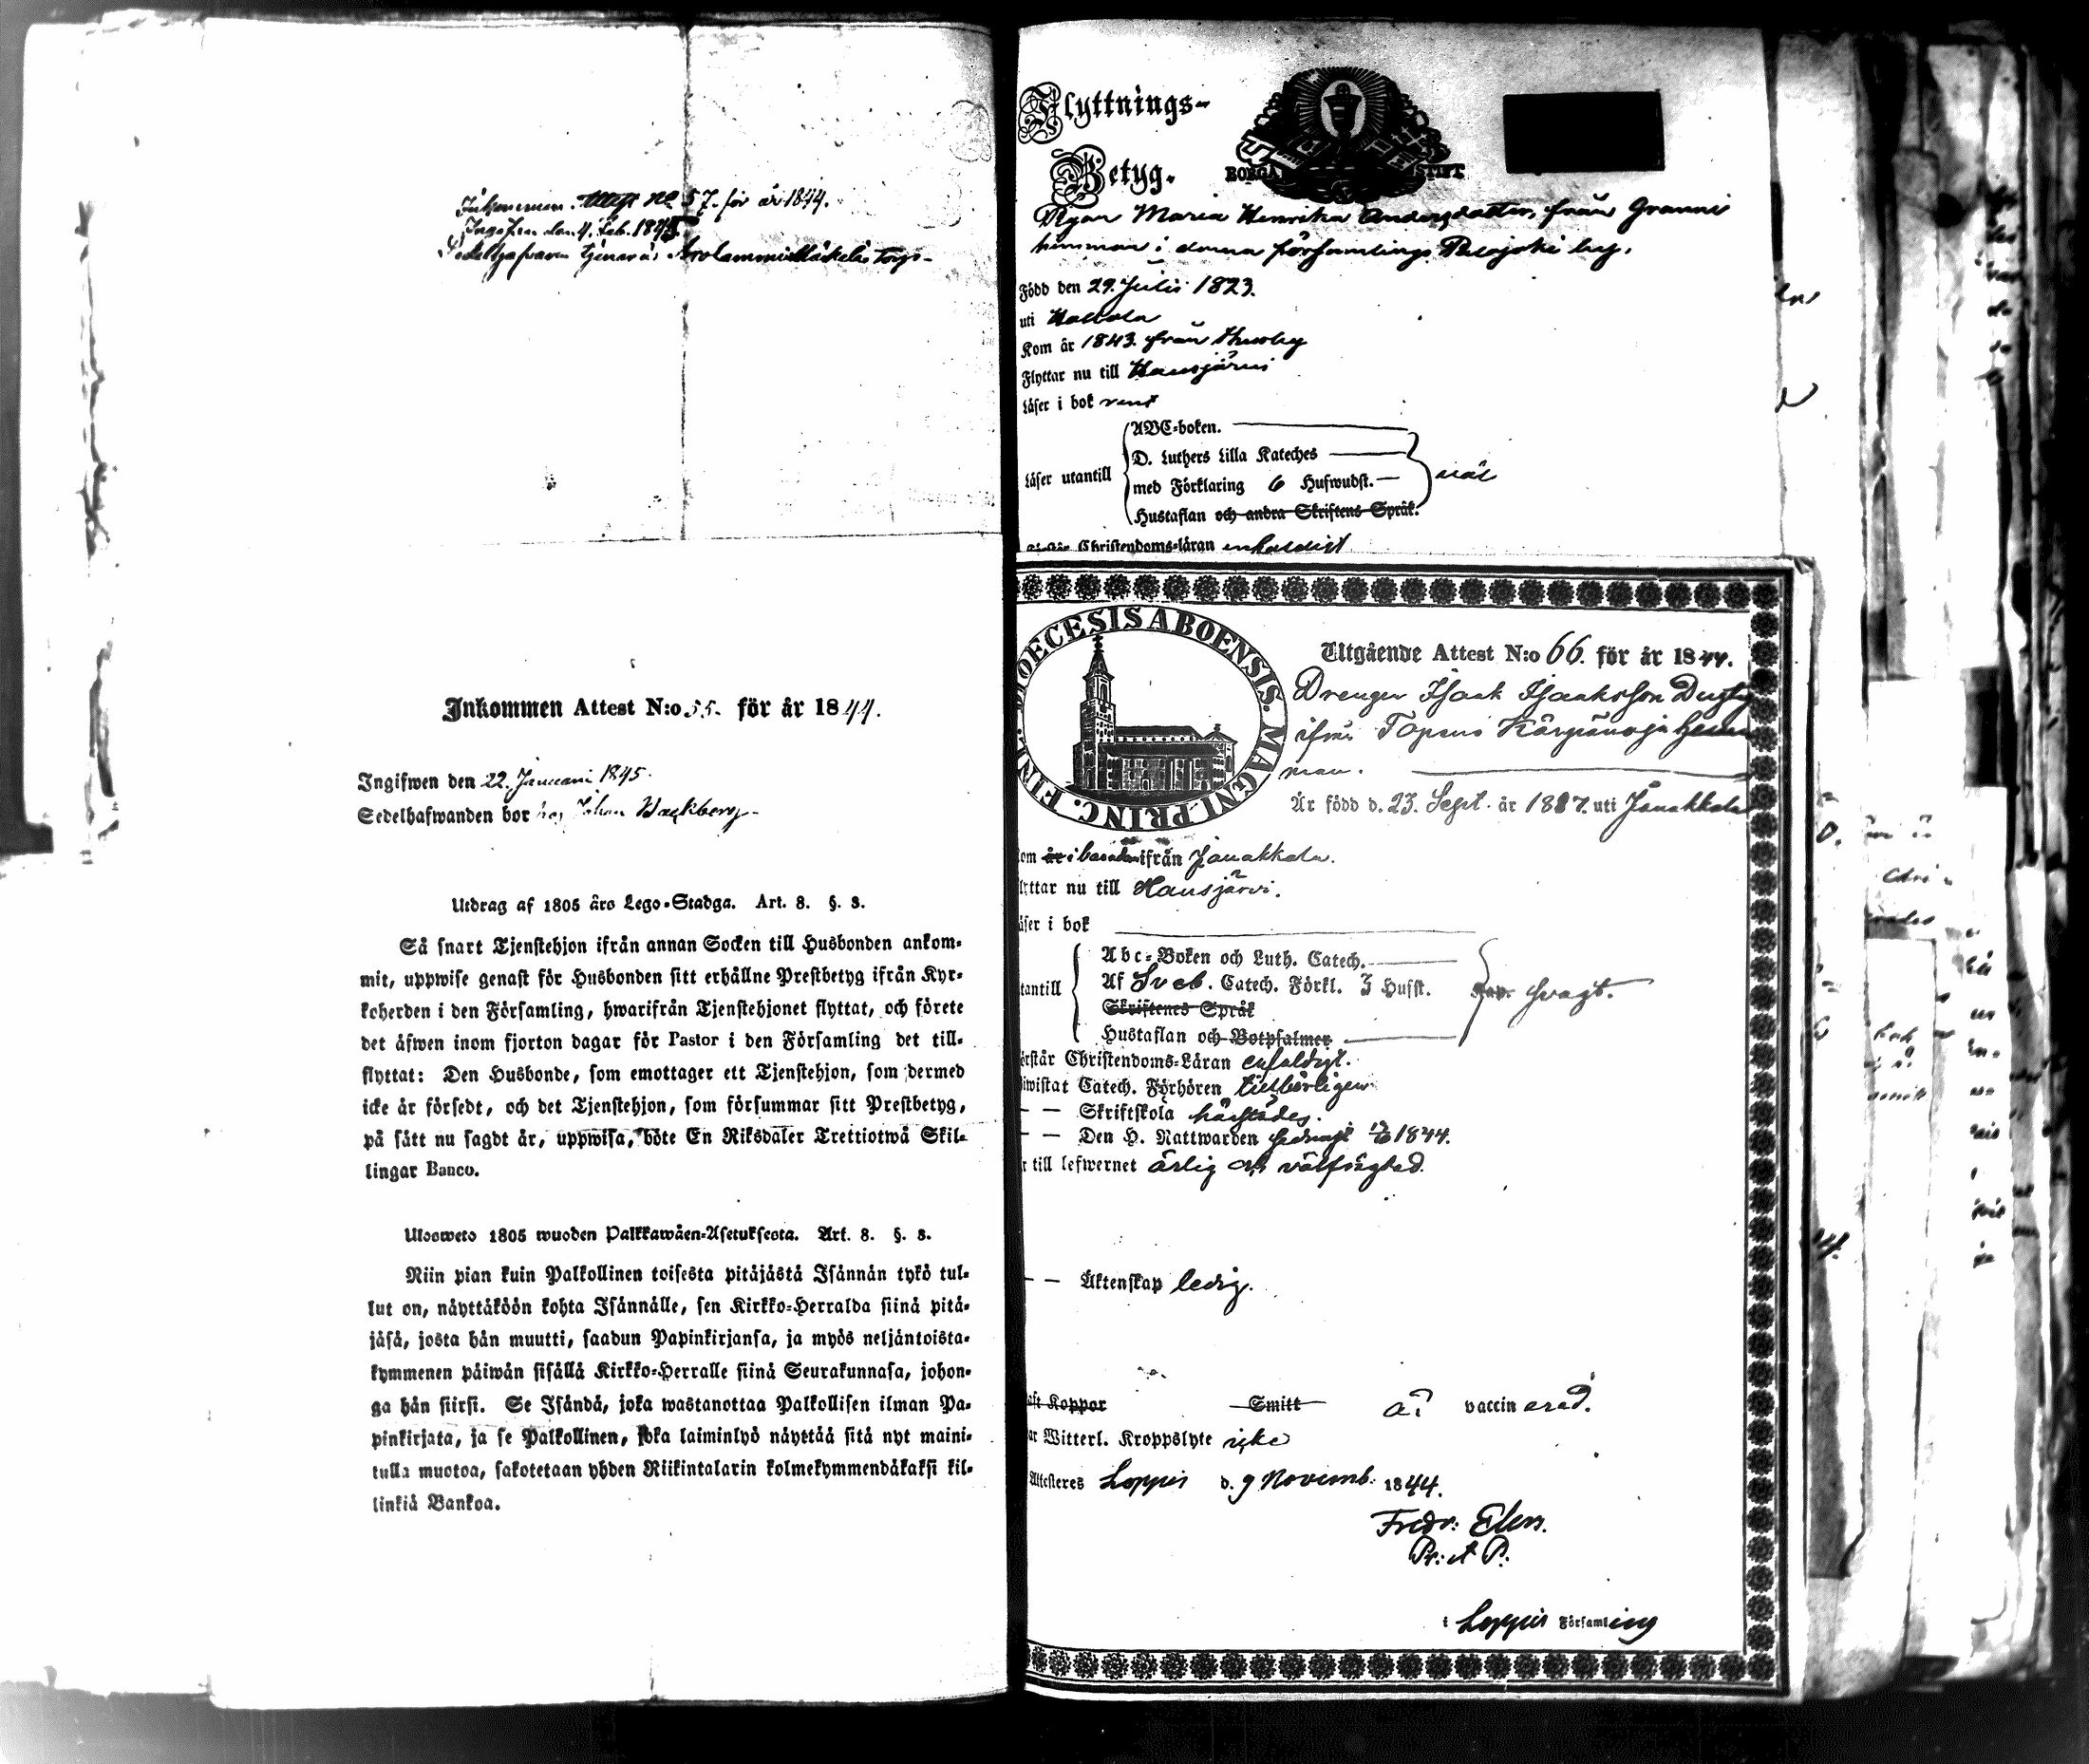 Inkommen Attest No 57. för år 1844.
Ingifven den 4. Feb. 1845.
Sedelhafvaren tjenar å Arolammi Mäkelä Torp-
Inkommen Attest N:o 55. för år 1844.
Ingifwen den 22. Januarii 1845.
Sedelhafwanden bor hos Johan Wackberg-
Utdrag af 1805 års Lego-Stadga. Art. 8. §. 3.
Så snart Tjenstehjon ifrån annan Socken till Husbonden ankom-
mit, uppwise genast för Husbonden sitt erhållne Prestbetyg ifrån Kyr-
koherden i den Församling, hwarifrån Tjenstehjonet flyttat, och förete
det äfwen inom fjorton dagar för Pastor i den Församling det till-
flyttat: Den Husbonde, som emottager ett Tjenstehjon, som dermed
icke är försedt, och det Tjenstehjon, som försummar sitt Prestbetyg,
på sätt nu sagdt är, uppwisa, böte En Riksdaler Trettiotwå Skil-
lingar Banco.
Ulosweto 1805 wuoden Palkkawäen-Asetuksesta. Art. 8. §. 3.
Niin pian kuin Palkollinen toisesta pitäjästä Isännän tykö tul-
lut on, näyttäköön kohta Isännälle, sen Kirkko-Herralda siinä pitä-
jäsä, josta hän muutti, saadun Papinkirjansa, ja myös neljäntoista-
kymmenen päiwän sisällä Kirkko-Herralle siinä Seurakunnasa, johon-
ga hän siirsi. Se Isändä, joka wastanottaa Palkollisen ilman Pa-
pinkirjata, ja se Palkollinen, joka laiminlyö näyttää sitä nyt maini-
tulla muotoa, sakotetaan yhden Riikintalarin kolmekymmendäkaksi kil-
linkiä Bankoa.
Flyttnings-
Betyg.
BORGÅ STIFT.
Pigan Maria Henrika Andersdotter, från Granni
hemman i denna församlings Palojoki by.
Född den 29. Julii 1823.
uti
Kom år 1843. från Husby
Flyttar nu till Hausjärvi
Läser i bok rent
ABC-boken.
D. Luthers Lilla Kateches
Läser utantill
med Förklaring 6 Hufwudst.
väl
Hustaflan och andra Skriftens Språk.
Christendoms-läran enfaldigt
DIOECESIS ABOENSIS. MAGNI. PRINC. FINL.
Utgående Attest N:o 66. för år 1844.
Drengen Isaak Isaaksson
ifrån Topeno Kärpänoja hem
man.
Är född d. 23. Sept. år 1827. uti Janakkala
om år i barndom ifrån Janakkala.
lyttar nu till Hausjärvi.
äser i bok
Abc-Boken och Luth. Catech.
tantill
Af Sveb. Catech. Förkl. 3 Hufst.
svagt.
Skriftenes Språk
Hustaflan och Botpsalmer
örstår Christendoms-Läran enfaldigt.
iwistat Catech. Förhören tillbörligen
— — Skriftskola härstädes.
— — Den H. Nattwarden sednast 1844.
r till lefwernet ärlig och välfrägdad.
— — Äktenskap ledig.
aft Koppor Smitt är vaccinerad.
ar Witterl. Kroppslyte icke
Attesteres Loppis d. 9 Novemb. 1844.
Fredr: Elers.
i Loppis Församling